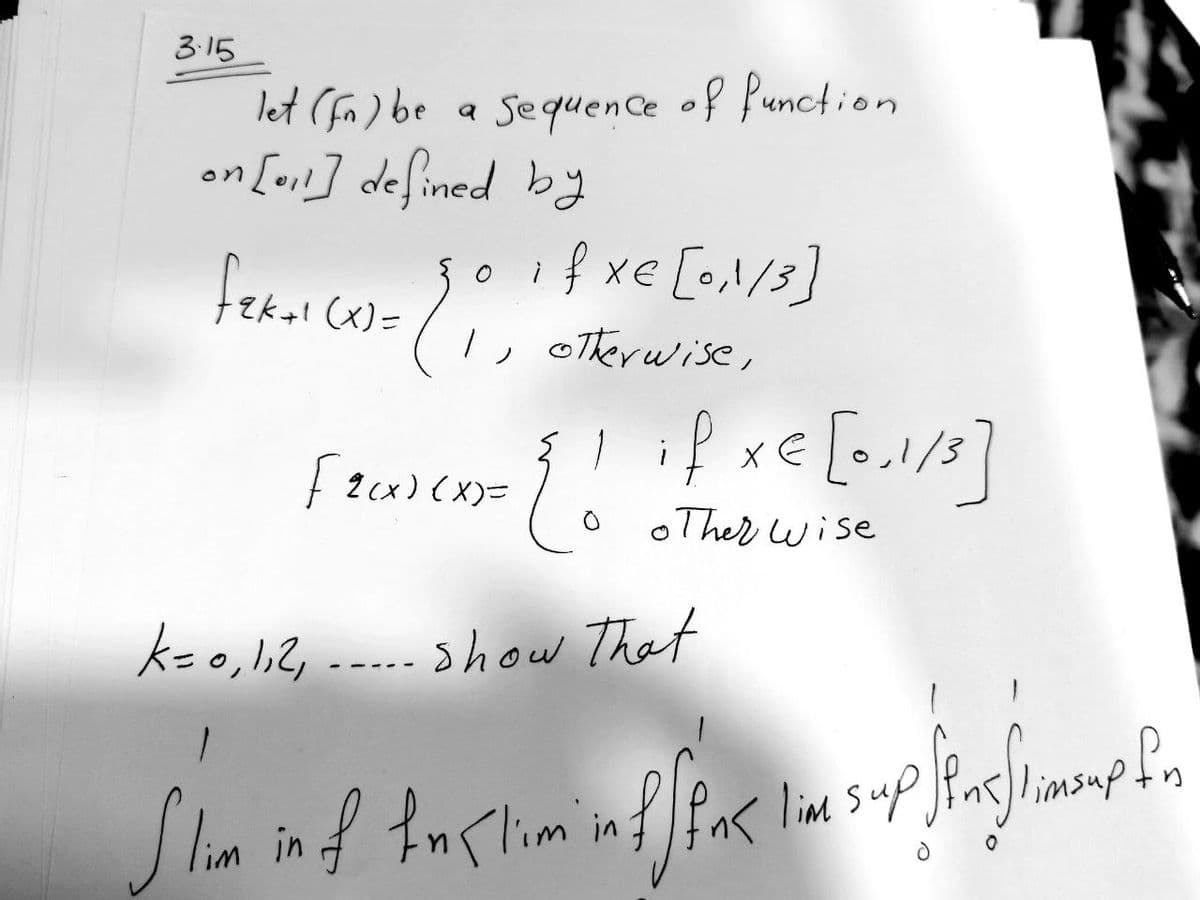 3.15
let (fn) be a sequence of function
on [0,1] defined by
f2k+1 (x) = { 0 if x∈[0,1/3]
1, otherwise,
f 2(x) (x) = { 1 if x∈[0,1/3]
0 otherwise
k=0,1,2, ----- show That
∫¹ lim inf fn < lim inf ∫¹ fn < lim sup ∫₀¹ fn < ∫₀¹ limsup fn